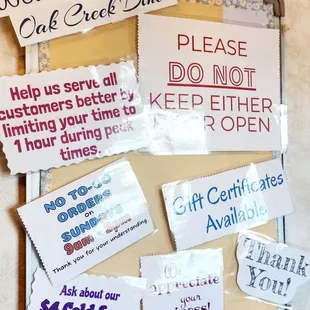 Oak Creek Di
PLEASE
DO NOT
KEEP EITHER
R OPEN
Help us serve all
customers better by
limiting your time to
1 hour during peak
times.
NO TO-GO
ORDERS
on
SUNDAYS
9am
Thank you for your understanding
Gift Certificates
Available
We
appreciate
your
Thank
You!
Ask about our